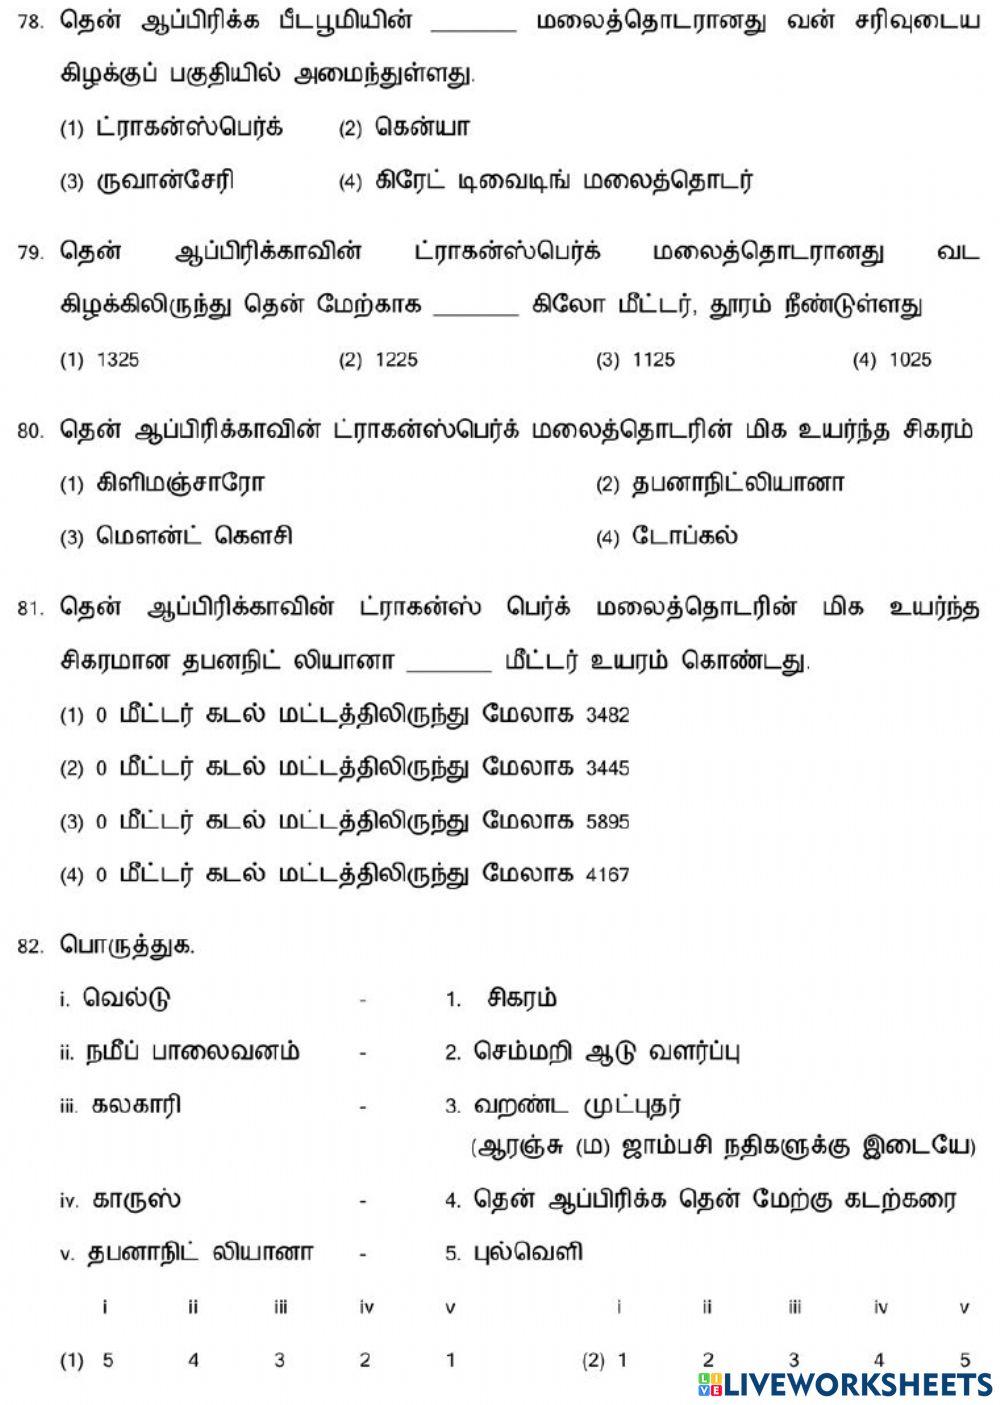 78. தென் ஆப்பிரிக்க பீடபூமியின் ______ மலைத்தொடரானது வன் சரிவுடைய
கிழக்குப் பகுதியில் அமைந்துள்ளது.
(1) ட்ராகன்ஸ்பெர்க் (2) கென்யா
(3) ருவான்சேரி (4) கிரேட் டிவைடிங் மலைத்தொடர்
79. தென் ஆப்பிரிக்காவின் ட்ராகன்ஸ்பெர்க் மலைத்தொடரானது வட
கிழக்கிலிருந்து தென் மேற்காக ______ கிலோ மீட்டர், தூரம் நீண்டுள்ளது
(1) 1325 (2) 1225 (3) 1125 (4) 1025
80. தென் ஆப்பிரிக்காவின் ட்ராகன்ஸ்பெர்க் மலைத்தொடரின் மிக உயர்ந்த சிகரம்
(1) கிளிமஞ்சாரோ (2) தபனாநிட்லியானா
(3) மௌன்ட் கௌசி (4) டோப்கல்
81. தென் ஆப்பிரிக்காவின் ட்ராகன்ஸ் பெர்க் மலைத்தொடரின் மிக உயர்ந்த
சிகரமான தபனநிட் லியானா ______ மீட்டர் உயரம் கொண்டது.
(1) 0 மீட்டர் கடல் மட்டத்திலிருந்து மேலாக 3482
(2) 0 மீட்டர் கடல் மட்டத்திலிருந்து மேலாக 3445
(3) 0 மீட்டர் கடல் மட்டத்திலிருந்து மேலாக 5895
(4) 0 மீட்டர் கடல் மட்டத்திலிருந்து மேலாக 4167
82. பொருத்துக.
i. வெல்டு - 1. சிகரம்
ii. நமீப் பாலைவனம் - 2. செம்மறி ஆடு வளர்ப்பு
iii. கலகாரி - 3. வறண்ட முட்புதர்
(ஆரஞ்சு (ம) ஜாம்பசி நதிகளுக்கு இடையே)
iv. காருஸ் - 4. தென் ஆப்பிரிக்க தென் மேற்கு கடற்கரை
v. தபனாநிட் லியானா - 5. புல்வெளி
i ii iii iv v i ii iii iv v
(1) 5 4 3 2 1 (2) 1 2 3 4 5
LIVE LIVEWORKSHEETS